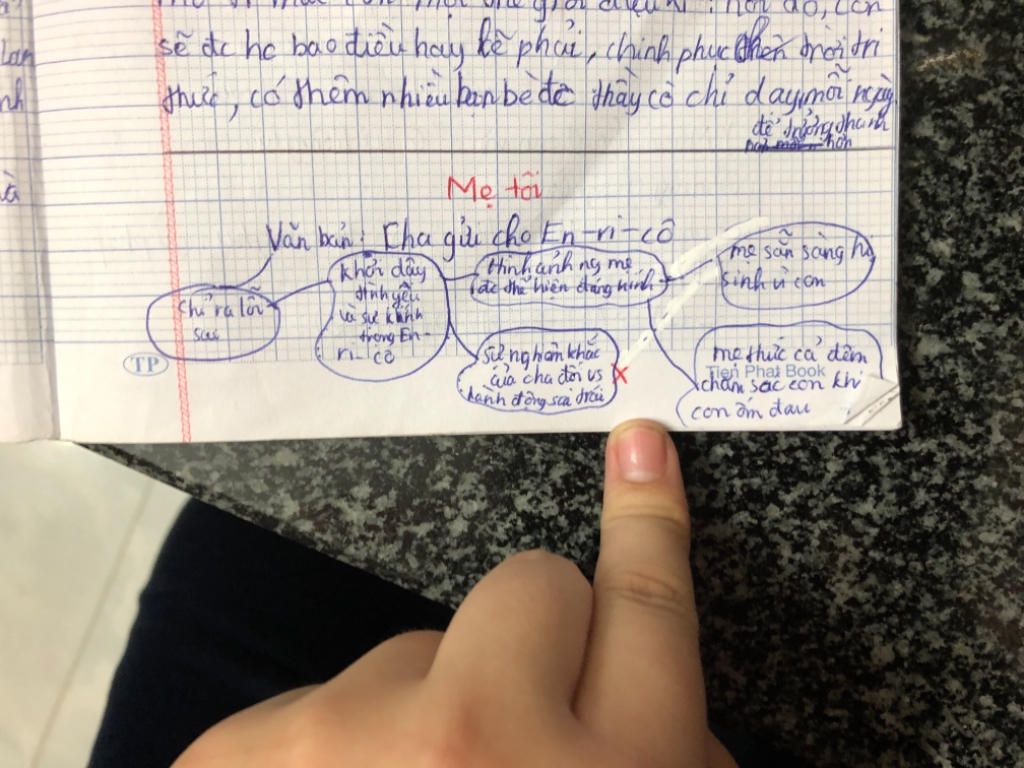 sẽ đc họ bao điều hay lẽ phải, chinh phục trời tri
thức, có thêm nhiều bạn bè để thầy cô chỉ dạy mỗi ngày
để trưởng thành
hơn
Mẹ tôi
Văn bản: Cha gửi cho En-ri-cô
Chỉ ra lỗi
sai
khơi dậy
tình yêu
và sự kính
trọng En-
ri-cô
Hình ảnh ng mẹ
đc thể hiện đáng kính
Sự nghiêm khắc
của cha đối vs
hành động sai trái
x
mẹ sẵn sàng hi
sinh vì con
mẹ thức cả đêm
chăm sóc con khi
con ốm đau
TP
Tien Phat Book